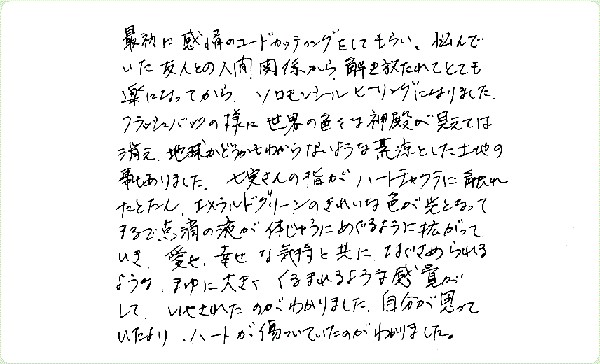 最初に感情のコードカッティングをしてもらい、悩んで
いた友人との人間関係から解き放たれてとても
楽になってから、ソロモンシールヒーリングになりました。
フラッシュバックの様に世界の色々な神殿が見えては
消え、地球かどうかもわからないような荒涼とした土地の
事もありました。七実さんの指がハートチャクラに触れ
たとたん、エメラルドグリーンのきれいな色が光となって
まるで点滴の液が体じゅうにめぐるように拡がって
いき、愛や、幸せな気持と共に、なぐさめられる
ような、まゆに大きくくるまれるような感覚が
して、いやされたのがわかりました。自分が思って
いたより、ハートが傷ついていたのがわかりました。